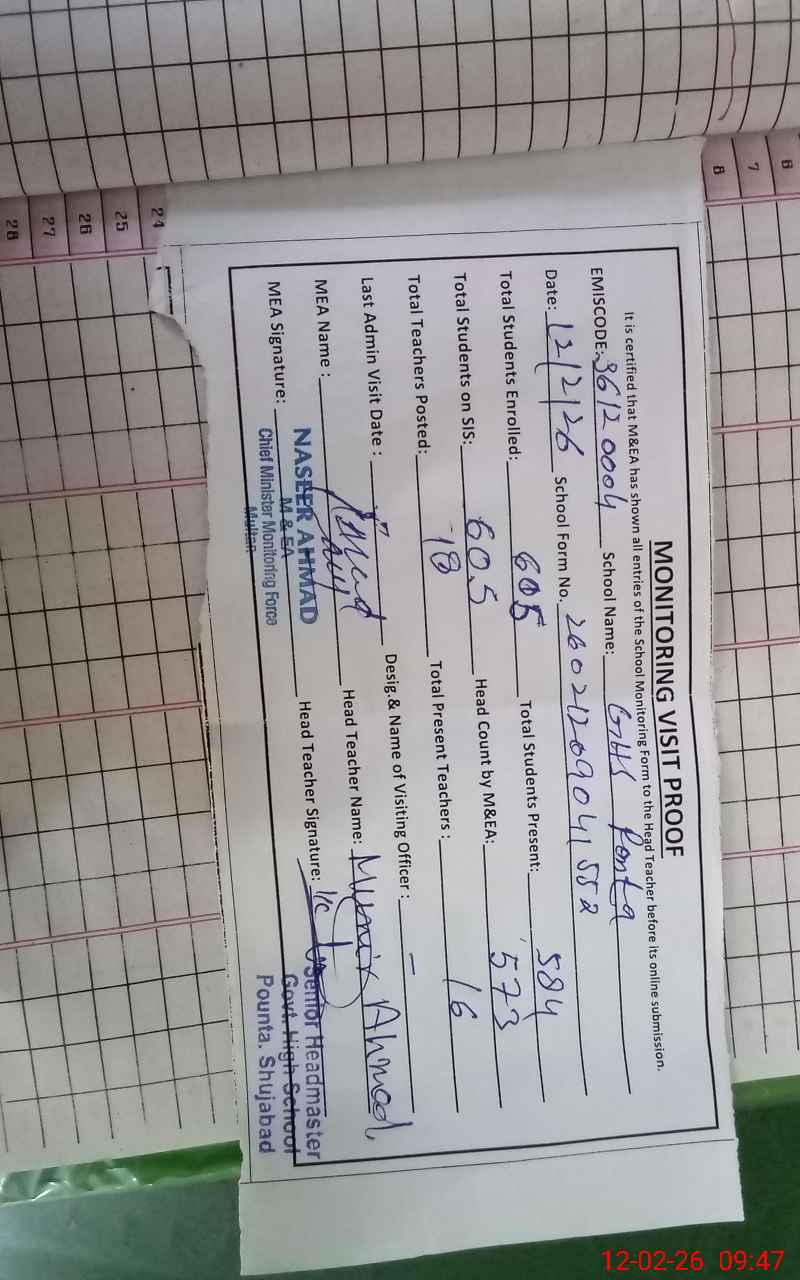 MONITORING VISIT PROOF
It is certified that M&EA has shown all entries of the School Monitoring Form to the Head Teacher before its online submission.
EMISCODE: 36120004 School Name: GHS Ponta
Date: 12/2/26 School Form No. 260212090041552
Total Students Enrolled: 605 Total Students Present: 584
Total Students on SIS: 605 Head Count by M&EA: 573
Total Teachers Posted: 18 Total Present Teachers: 16
Last Admin Visit Date : Desig.& Name of Visiting Officer : -
MEA Name : Head Teacher Name: Munir Ahmad
MEA Signature: Head Teacher Signature: I/c
NASEER AHMAD
M & EA
Chief Minister Monitoring Force
Multan
Senior Headmaster
Govt. High School
Pounta. Shujabad
6
7
8
24
25
26
27
28
12-02-26 09:47